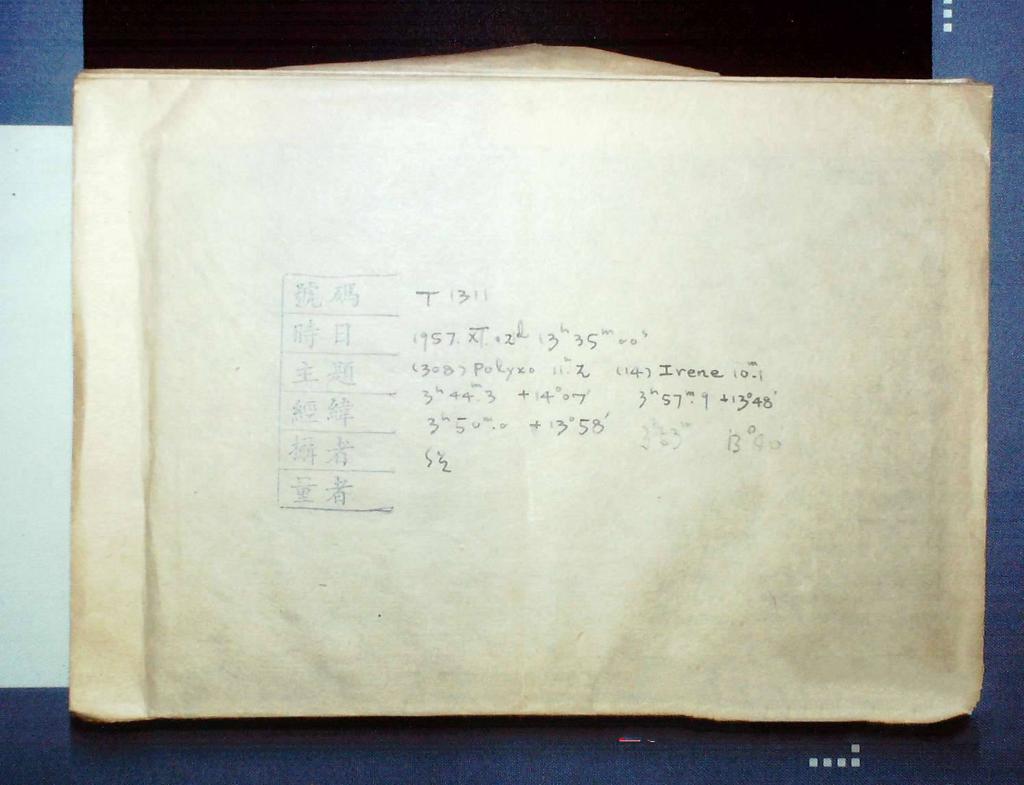 號碼 T 1311
時日 1957. XI. 02ᵈ 13ʰ 35ᵐ 00ˢ
主題 (308) Polyxo 11ᵐ.2 (14) Irene 10ᵐ.1
3ʰ 44ᵐ.3 +14°07′ 3ʰ 57ᵐ.9 +13°48′
經緯 3ʰ 50ᵐ.0 +13°58′ 13°40′
攝者
量者